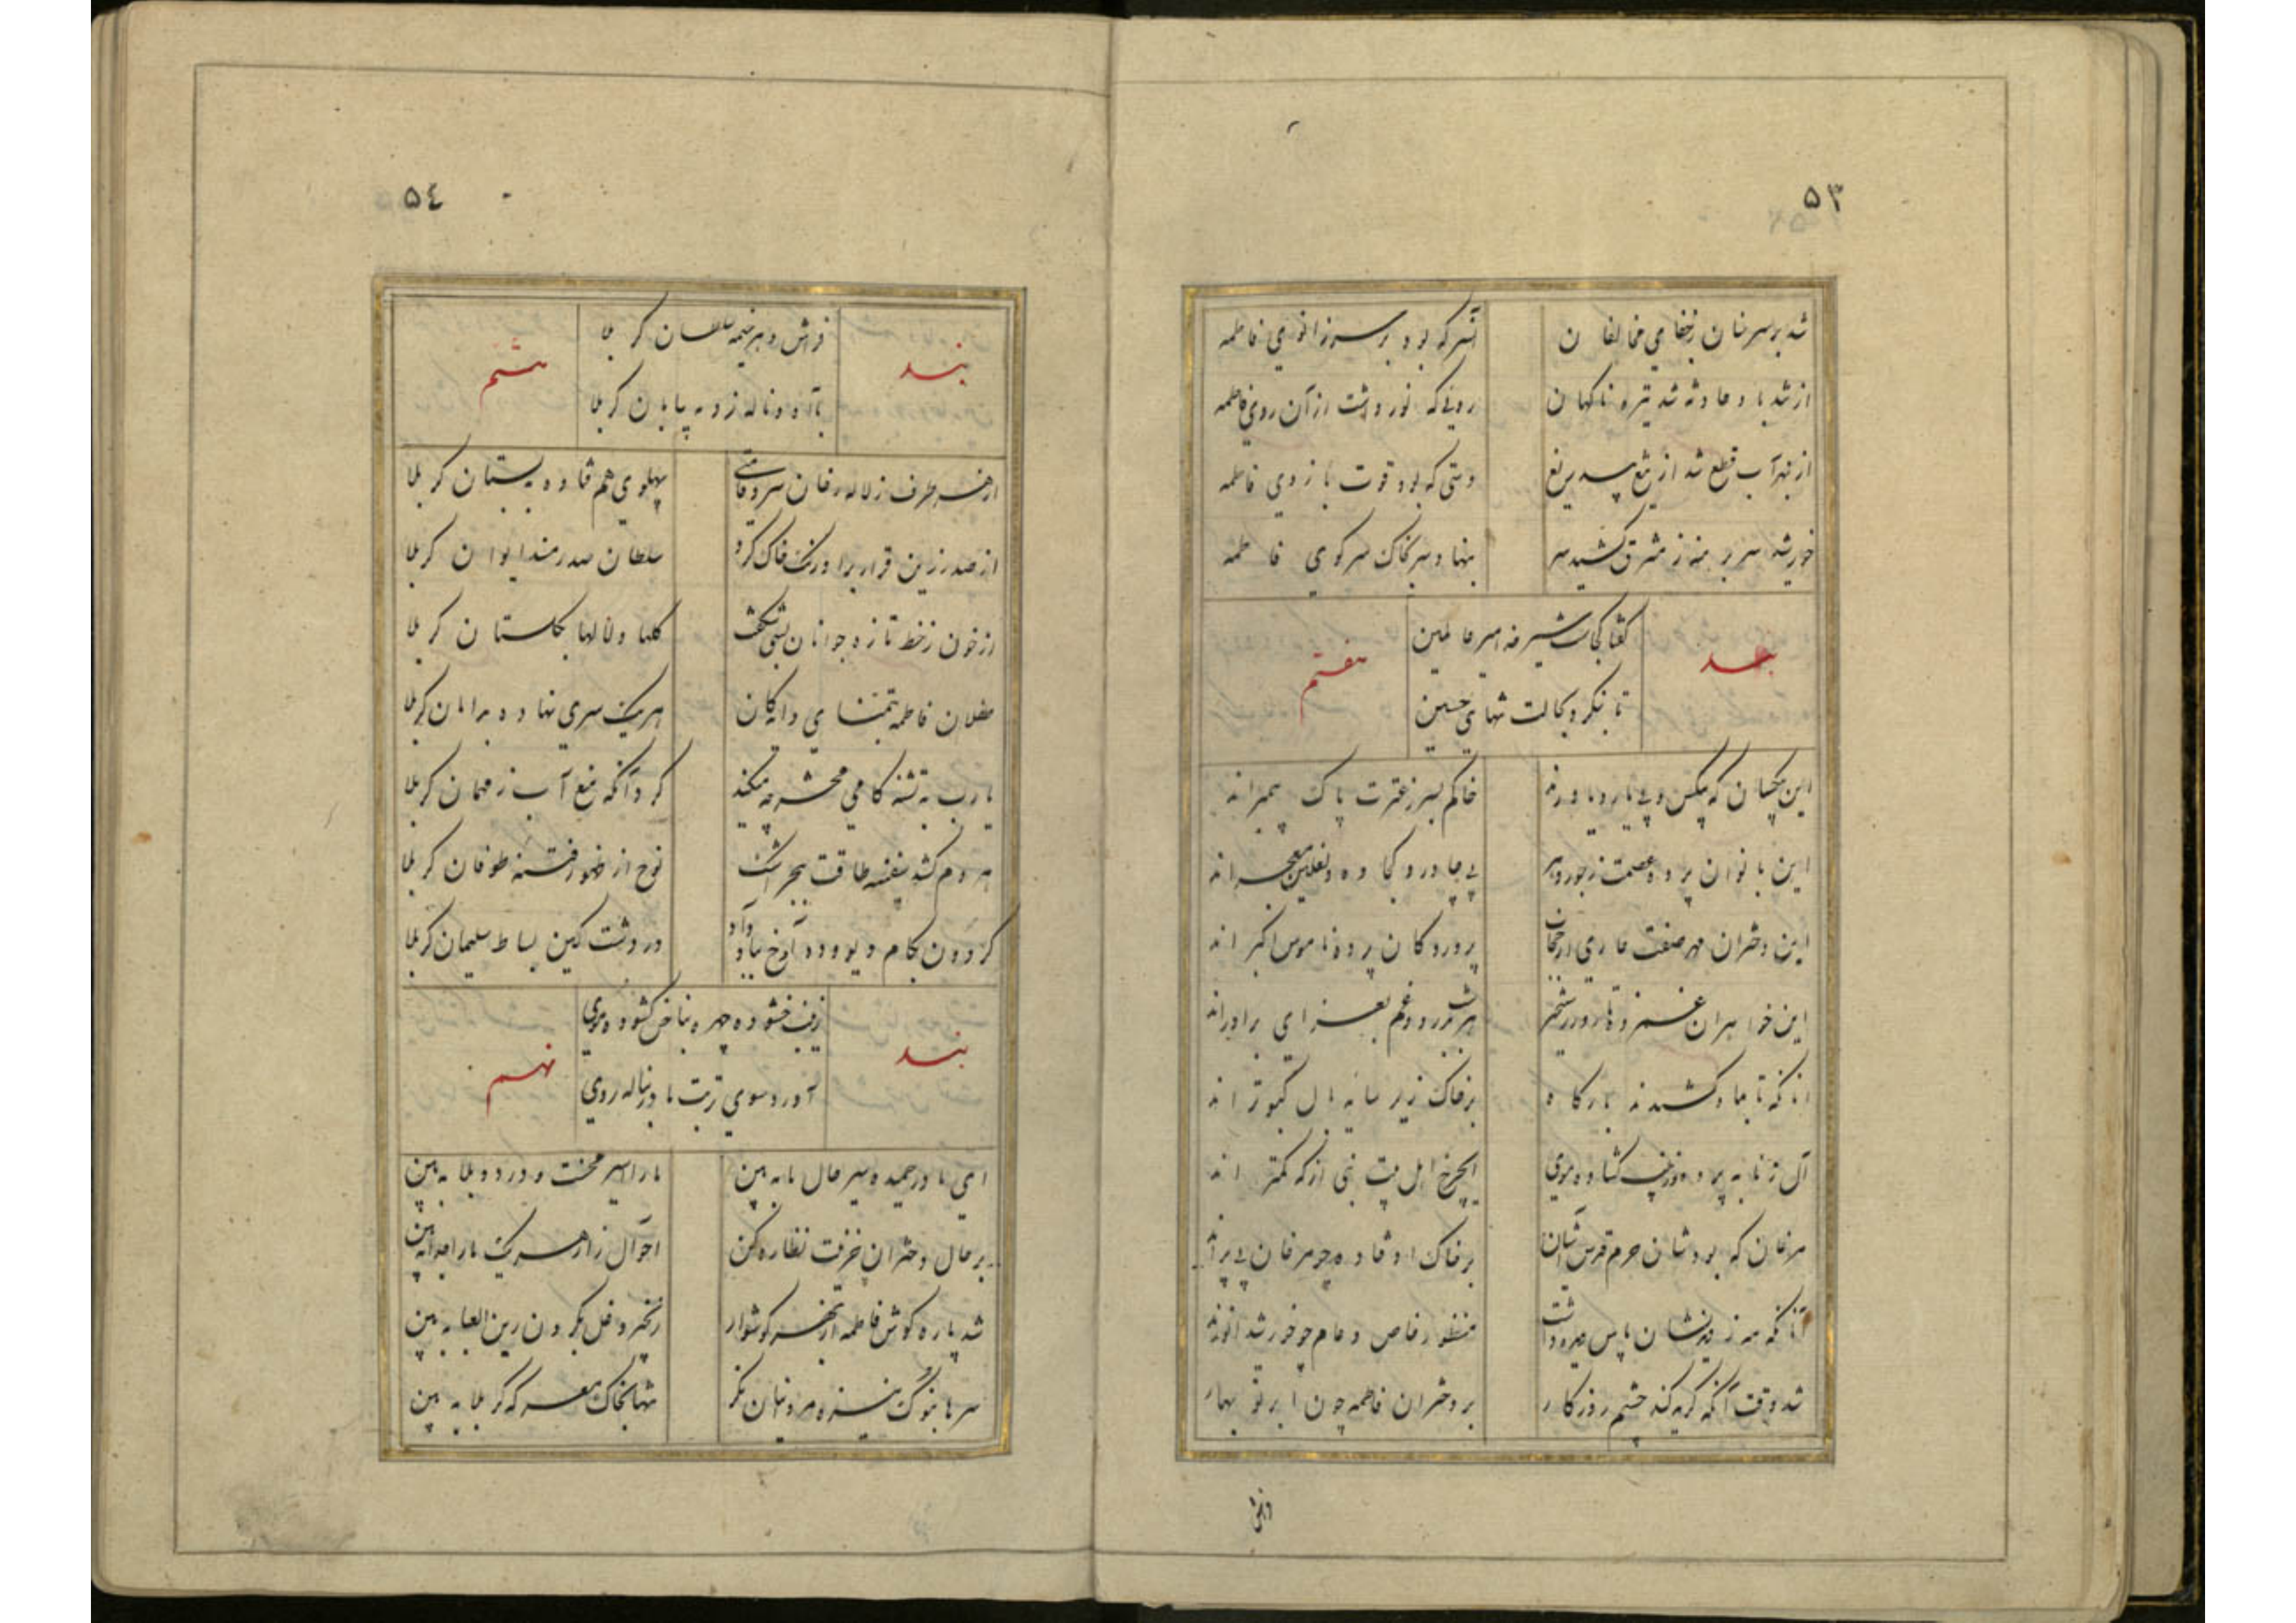 ۵۳
شد بر سر سنان ز جفای مخالفان
آنسر که بود بر سر زانوی فاطمه
از تندباد حادثه شد تیره ناکهان
رویی که نور داشت از آن روی فاطمه
از بهر آب قطع شد از تیغ بیدریغ
دستی که بود قوت بازوی فاطمه
خورشید سر برهنه ز مشرق کشید سر
بنهاد سر بخاک سر کوی فاطمه
بند
گفتا کجاست شیر خدا میر عالمین
تا بنکرد بحالت شهای حسین
هفتم
این بیکسان که بیکس و بی یار و یاورند
حاکم بسر ز عترت پاک پیمبرند
این بانوان پرده عصمت
بی چادر و کجاوه و نعلین و معجرند
این دختران مهر صفت عاری از حجاب
پروردکان پرده ناموس اکبرند
این خواهران غمزده
بعزای برادرند
آنانکه تا بماه کشیدند بارکاه
بر خاک زیر سایه بال کبوترند
آل زنا به پرده و زینب کشاده موی
ایچرخ اهل بیت نبی از که کمترند
مرغان که بودشان حرم قدس آشیان
بر خاک اوفتاده چو مرغان بی پرند
آنانکه مه ز دیدنشان پاس دیده داشت
منظور خاص و عام چو خورشید انورند
شد وقت آنکه کریه کند چشم روزکار
بر دختران فاطمه چون ابر نوبهار
۵٤
بند
فراش زد چو خیمه سلطان کربلا
با آه و ناله زد به بیابان کربلا
هشتم
از هر طرف ز لاله رخان سرو قامتی
پهلوی هم فتاده به بستان کربلا
از صدر زین قرار بر اورنک خاک کرد
سلطان صدر مسند ایوان کربلا
از خون ز خط تازه جوانان بسی شکفت
کلها و لالها بکلستان کربلا
طفلان فاطمه بتمنای دایکان
هر یک سری نهاده بدامان کربلا
یارب به تشنه کامی محشر چه میکند
کرد آنکه منع آب ز مهمان کربلا
هر دم کشد بنفسه طاقت ببحر اشک
نوح از ظهور فتنه طوفان کربلا
کردون بکام دیو و دد آوخ بباد داد
در دشت کین بساط سلیمان کربلا
بند
زینب خشوده چهره بناخن کشوده موی
آورد سوی تربت مادر بناله روی
نهم
ای مادر حمیده سیر حال ما به بین
ما را اسیر محنت و درد و بلا به بین
بر حال دختران حزینت نظاره کن
احوال زار هر یک ما را جدا به بین
شد پاره کوش فاطمه از بهر کوشوار
زنجیر و غل بکردن زین العبا به بین
سرها بنوک نیزه مردانیان نکر
تنها بخاک معرکه کربلا به بین